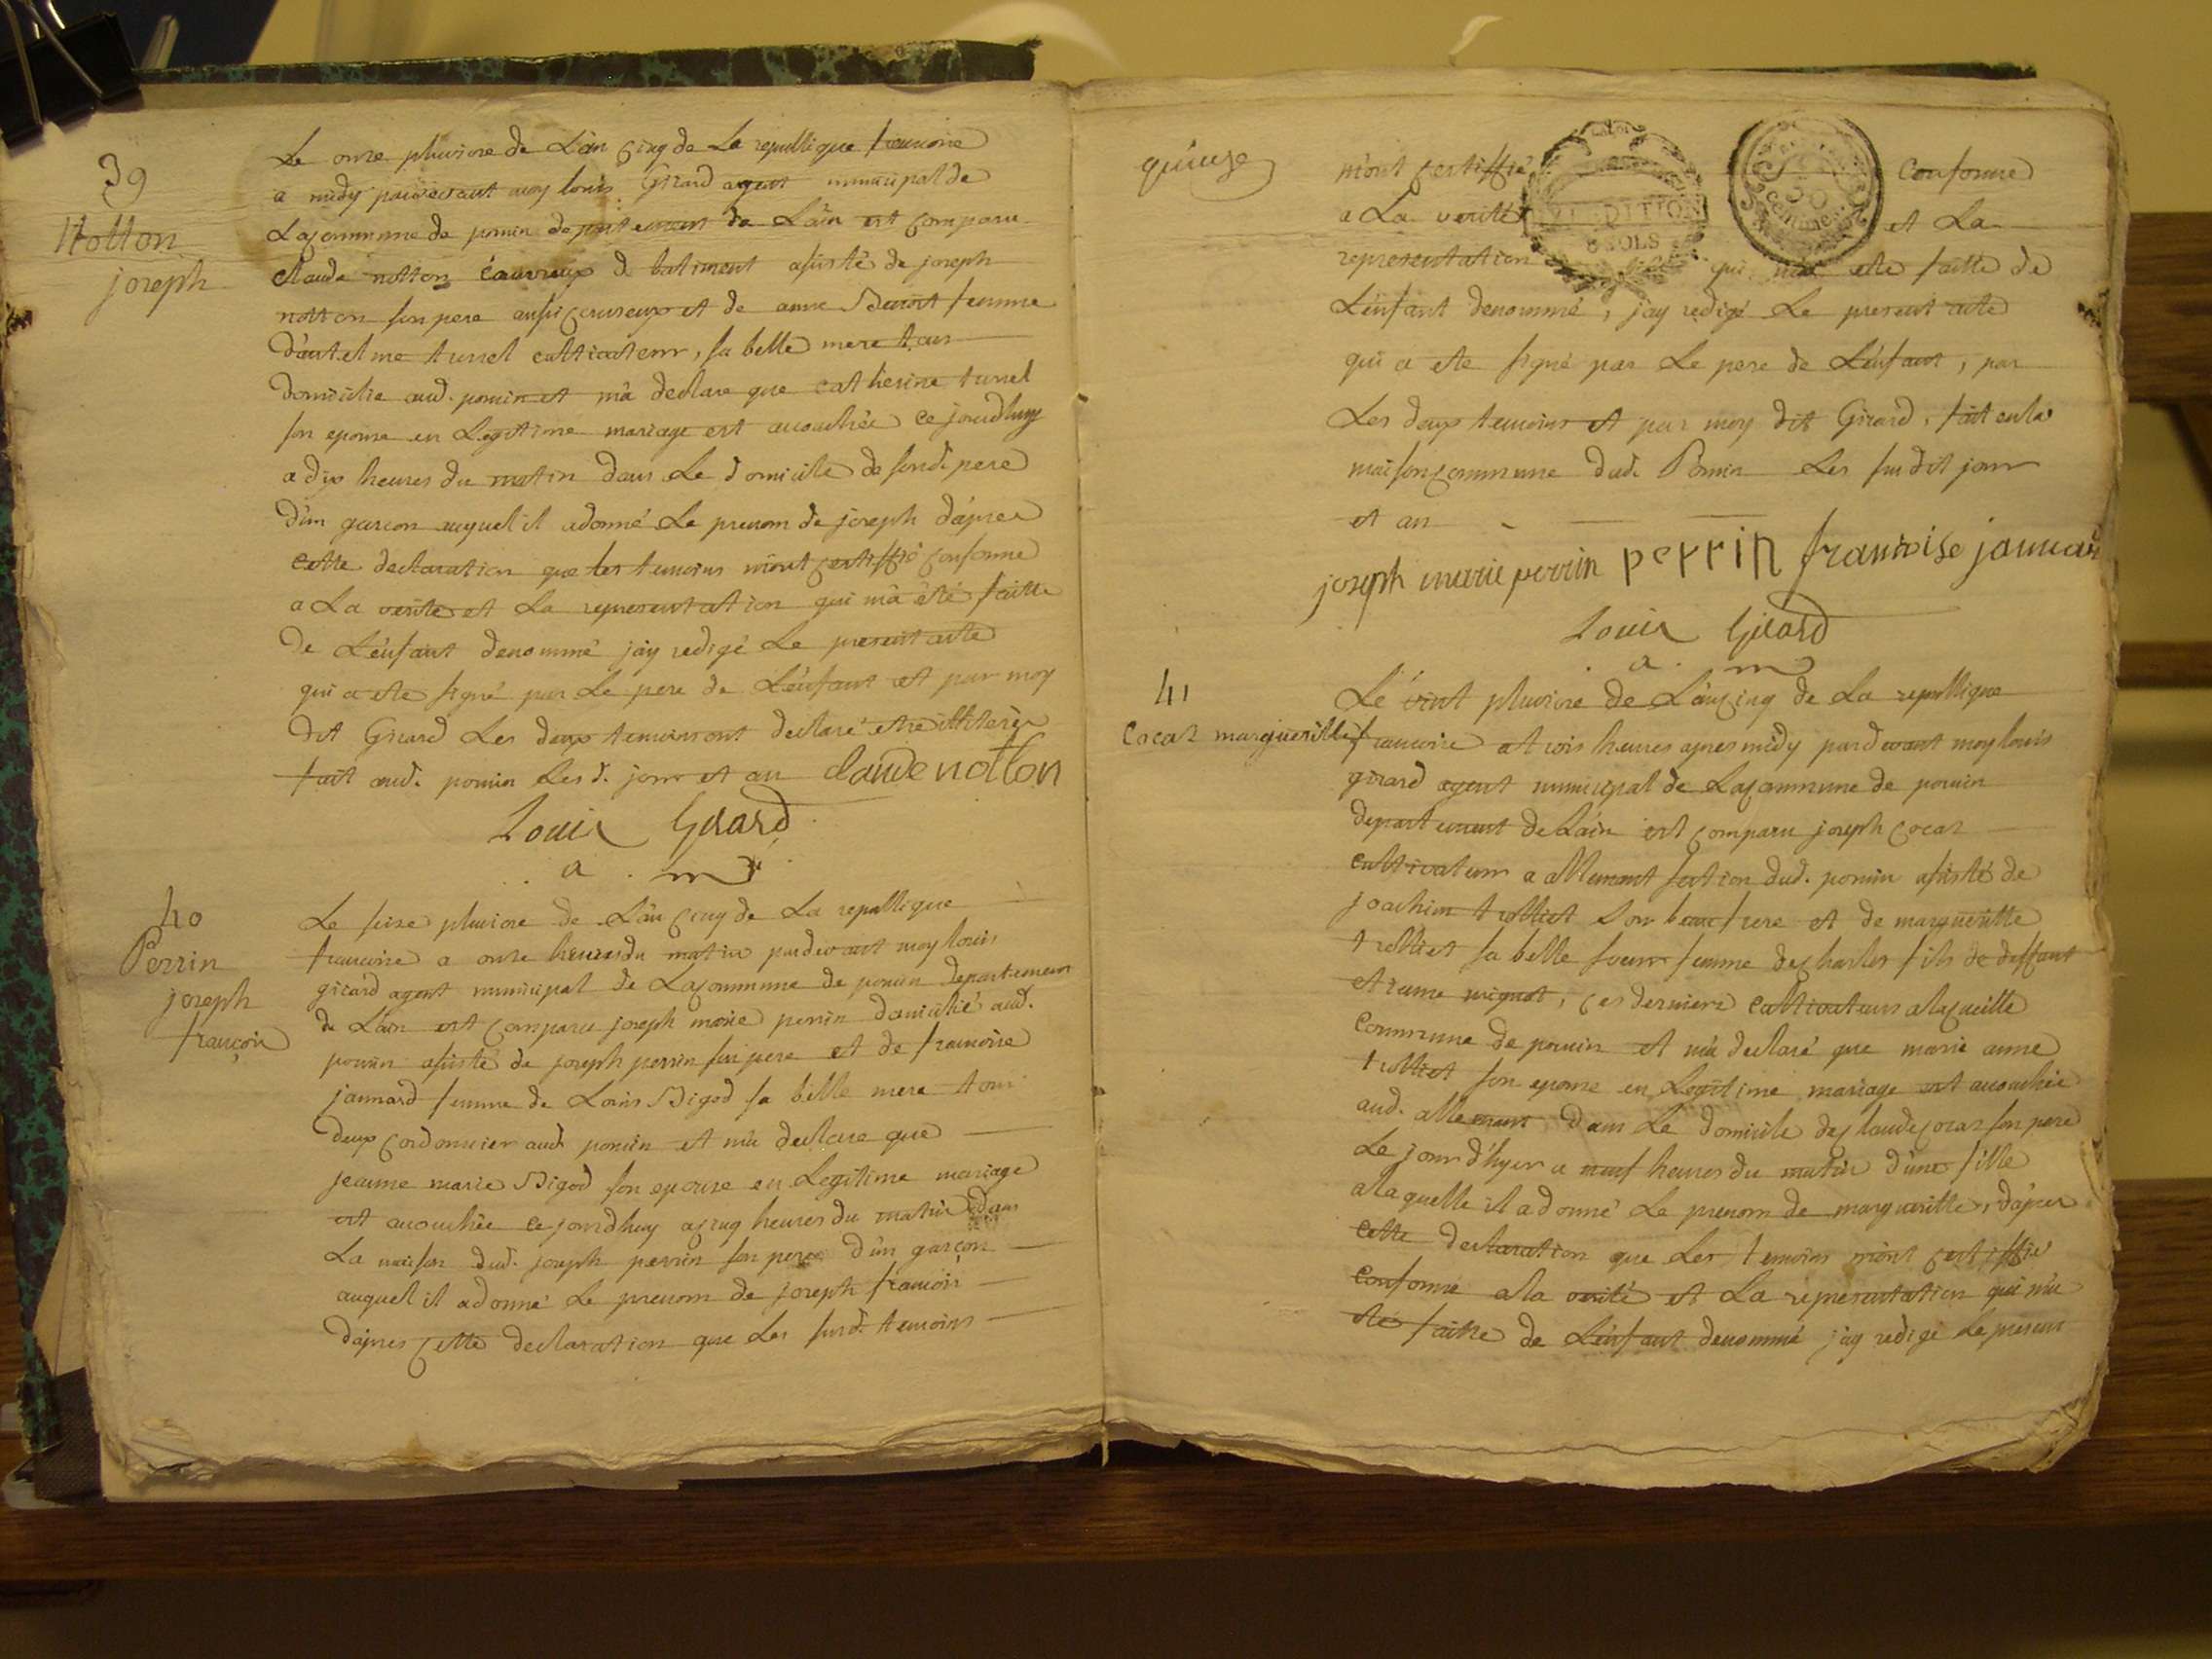 39
Notton
joseph
Le onze pluviose de L'an cinq de La republique francoise
a midy pardevant moy louis Girard agent municipal de
La commune de poncin departement de L'ain est comparu
claude notton couvreux de batiment assisté de joseph
notton son pere aussi couvreux et de anne Benoit femme
d'antelme turrel cultivateur, sa belle mere tous
domicilie aud. poncin et m'a declare que catherine turrel
son epouse en Legitime mariage est accouchée ce jourdhuy
a dix heures du matin dans Le domicile de sond. pere
d'un garcon auquel il a donné Le prenom de joseph d'apres
cette declaration que les temoins m'ont certiffié conforme
a La verite et La representation qui m'a été faitte
de L'enfant denommé j'ay redigé Le present acte
qui a ete signé par Le pere de L'enfant et par moy
dit Girard Les deux temoins ont declaré etre illiterés
fait aud. poncin Les d. jour et an claude notton
Louis Girard
a . m
40
Perrin
joseph
françois
Le seize pluviose de L'an cinq de La republique
francoise a onze heures du matin pardevant moy louis
girard agent municipal de La commune de poncin departement
de L'ain est comparu joseph marie perrin domicilié aud.
poncin assisté de joseph perrin son pere et de francoise
jannard femme de Louis Bigod sa belle mere tous
deux cordonnier aud. poncin et m'a declare que
jeanne marie Bigod son epouse en Legitime mariage
est accouchée ce jourdhuy a cinq heures du matin dans
La maison dud. joseph perrin son pere d'un garcon
auquel il a donné Le prenom de joseph francois
d'apres cette declaration que Les susd. temoins
quinze
m'ont certiffié conforme
a La verité et La
representation qui m'a ete faitte de
L'enfant denommé, j'ay redigé Le present acte
qui a ete signé par Le pere de L'enfant, par
Les deux temoins et par moy dit Girard, fait en la
maison commune dud. Poncin Les susdit jour
et an
EXPEDITION
8 SOLS
50
centime
joseph marie perrin perrin francoise jannard
Louis Girard
a . m
41
Cocaz margueritte
Le vint pluviose de L'an cinq de La republique
francoise a trois heures apres midy pardevant moy louis
girard agent municipal de La commune de poncin
departement de L'ain est comparu joseph cocaz
cultivateur a allement section dud. poncin assisté de
joachim trolliet son beau frere et de marguerite
trolliet sa belle soeur femme de charles fils de deffunt
etienne mignot, ces derniers cultivateurs a la cueille
commune de poncin et m'a declaré que marie anne
trolliet son epouse en Legitime mariage est accouchée
aud. allement dans Le domicile de claude cocaz son pere
Le jour d'hyer a neuf heures du matin d'une fille
a laquelle il a donné Le prenom de marguerite, d'apres
cette declaration que Les temoins m'ont certiffié
conforme a la verité et La representation qui m'a
été faitte de L'enfant denommé j'ay redigé Le present